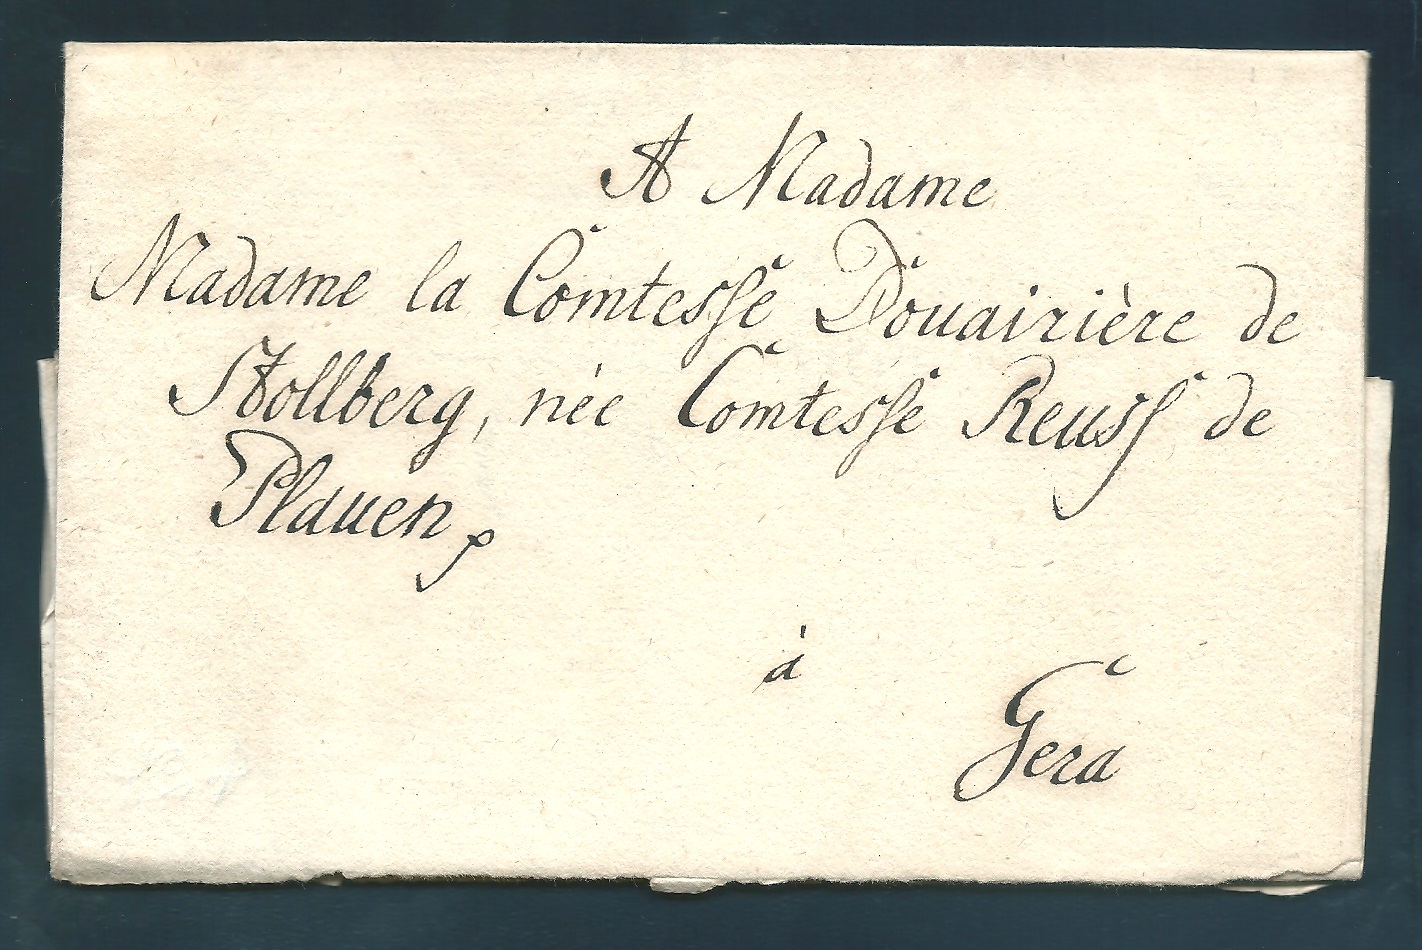 A Madame
Madame la Comtesse Douairière de
Stollberg, née Comtesse Reuss de
Plauen,
à
Gera